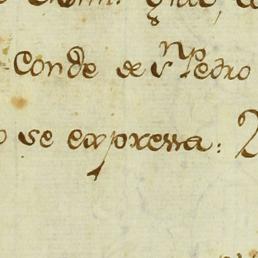 Conde de Sⁿ Pedro
o se expressa: